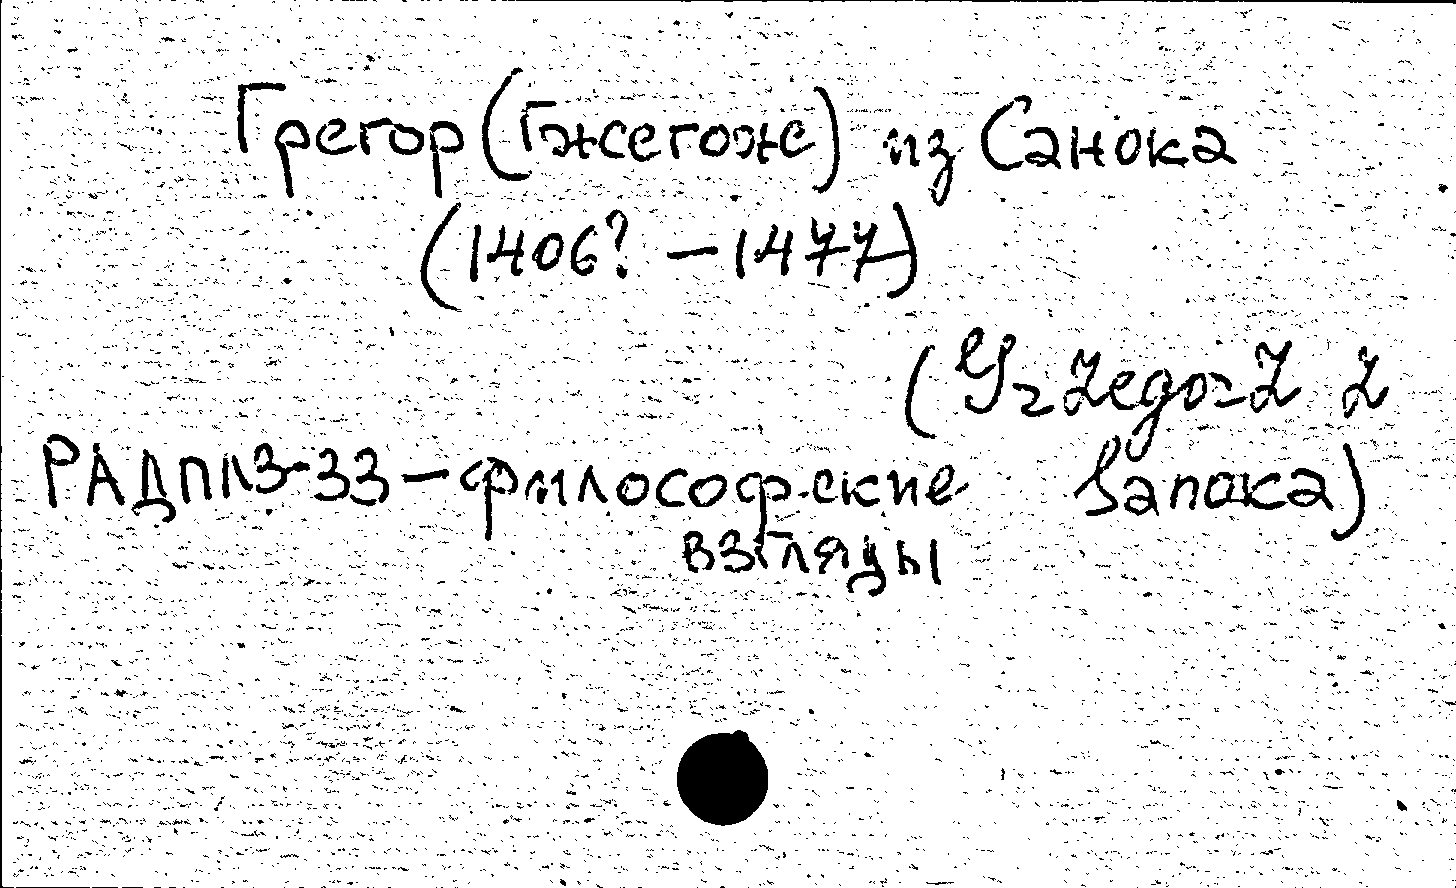 Грегор (Гжегоже) из Санока
(1406? – 1477)
(Grzegorz z
РАДПЛЗ-33 – философские Sanoka)
взгляды